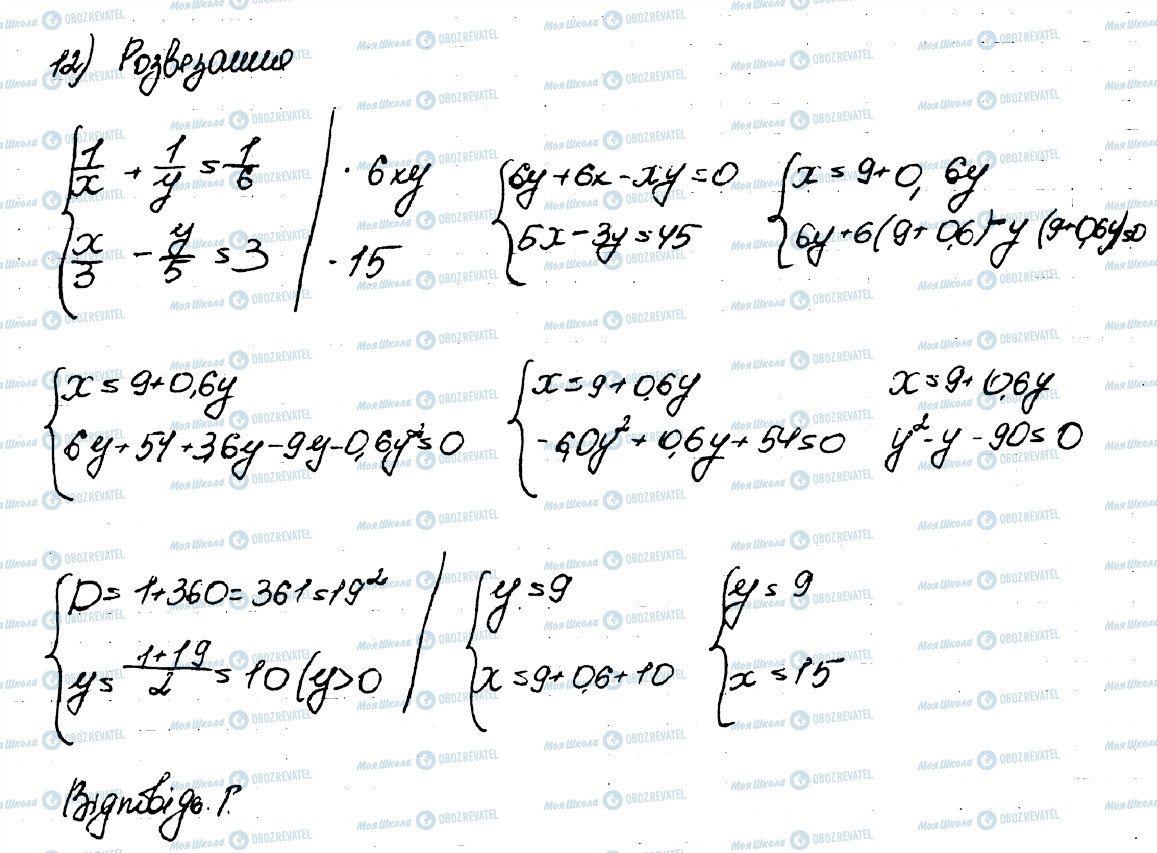 12) Розвезання
{ 1/x + 1/y = 1/6 | · 6xy
{ x/3 - y/5 = 3 | · 15
{ 6y + 6x - xy = 0
{ 5x - 3y = 45
{ x = 9 + 0,6y
{ 6y + 6(9 + 0,6) - y(9+0,6y)=0
{ x = 9 + 0,6y
{ 6y + 54 + 3,6y - 9y - 0,6y² = 0
{ x = 9 + 0,6y
{ -6,0y² + 0,6y + 54 = 0
x = 9 + 0,6y
y² - y - 90 = 0
{ D = 1 + 360 = 361 = 19²
{ y = (1+19)/2 = 10 (y>0
{ y = 9
{ x = 9 + 0,6 + 10
{ y = 9
{ x = 15
Відповідь. Г.
Моя Школа OBOZREVATEL